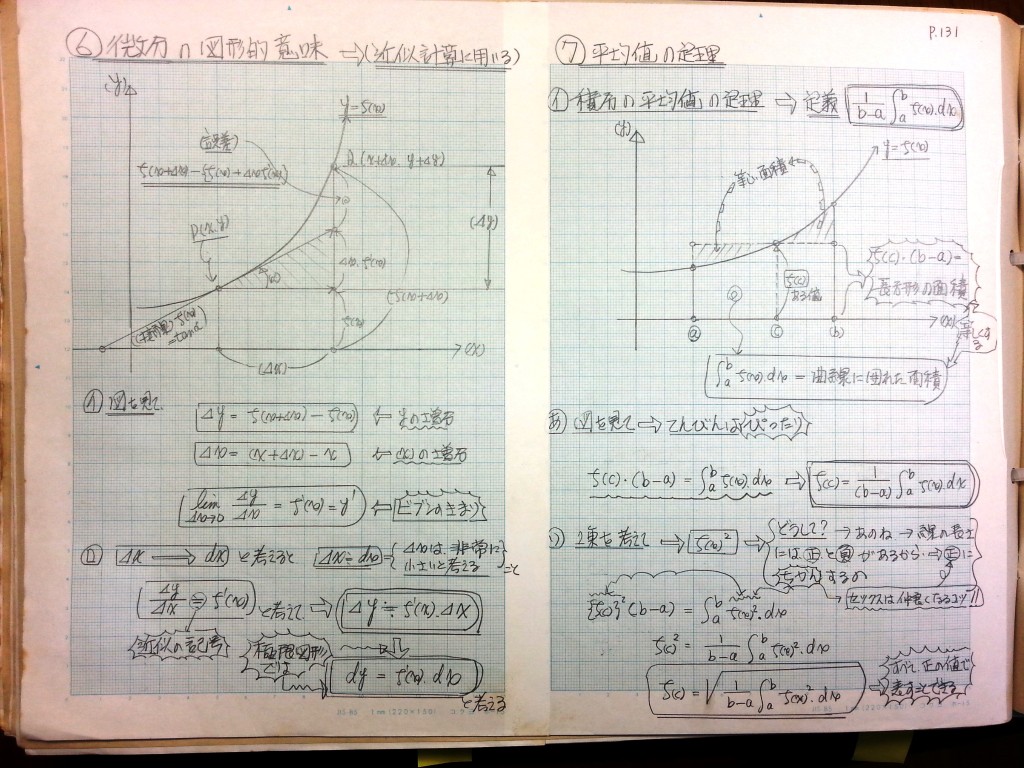 P.131
⑥ 微分の図形的意味 ⇒(近似計算に用いる)
(y)
y=f(x)
(誤差)
Q(x+Δx, y+Δy)
f(x+Δx)-{f(x)+Δxf'(x)}
P(x,y)
(Δy)
Δx・f'(x)
f(x+Δx)
f(x)
=tanα
(Δx)
(x)
イ 図を見て
Δy = f(x+Δx) - f(x) ⇐ yの増分
Δx = (x+Δx) - x ⇐ (x)の増分
lim Δx→0 Δy/Δx = f'(x) = y' ⇐ ビブンのきまり
ロ Δx → dx と考えると Δx≒dx Δxは非常に小さいと考えると
Δy/Δx ≒ f'(x) と考えて ⇒ Δy ≒ f'(x)・Δx
近似の記号
極限図形では
dy = f'(x)・dx
と考える
⑦ 平均値の定理
イ 積分の平均値の定理 ⇒ 定義 1/(b-a) ∫a b f(x)・dx
(y)
y=f(x)
等しい面積
f(c)・(b-a)=
長方形の面積
f(c)
ある値
(a) (c) (b) (x)
等しくなる
∫a b f(x)・dx = 曲線に囲れた面積
あ 図を見て → てんびんは(ぴったり)
f(c)・(b-a) = ∫a b f(x)・dx ⇒ f(c) = 1/(b-a) ∫a b f(x)・dx
2乗を考えて → f(x)² → どうして? → あのね →
には 正 と 負 があるから ⇒ 正 に
するの
{f(c)}²(b-a) = ∫a b f(x)²・dx
f(c)² = 1/(b-a) ∫a b f(x)²・dx
f(c) = √ 1/(b-a) ∫a b f(x)²・dx
すべて正の値で
表すことできる